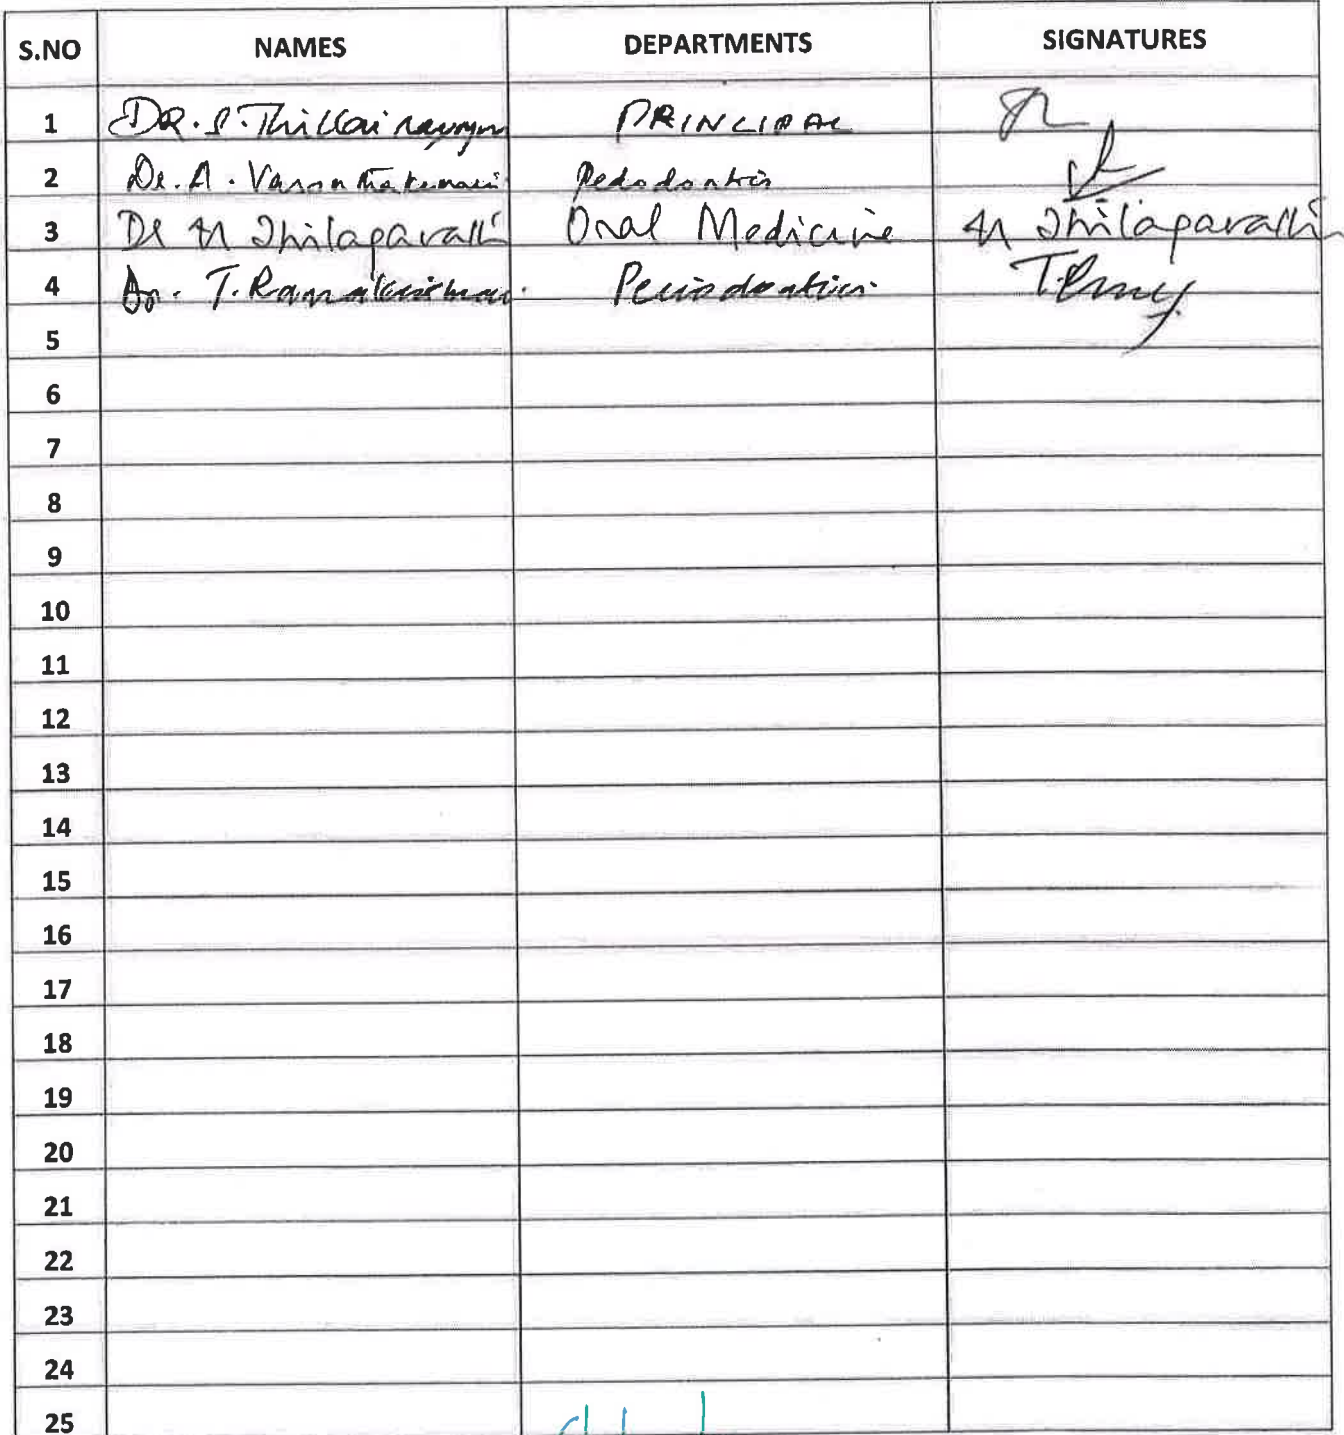 S.NO NAMES DEPARTMENTS SIGNATURES
1 DR. S. Thillai PRINCIPAL
2 Dr. A. Vasanthakumari Pedodontics
3 Dr M Thilagavathi Oral Medicine M Thilagavathi
4 Dr. T. Ramakrishnan Periodontics
5
6
7
8
9
10
11
12
13
14
15
16
17
18
19
20
21
22
23
24
25